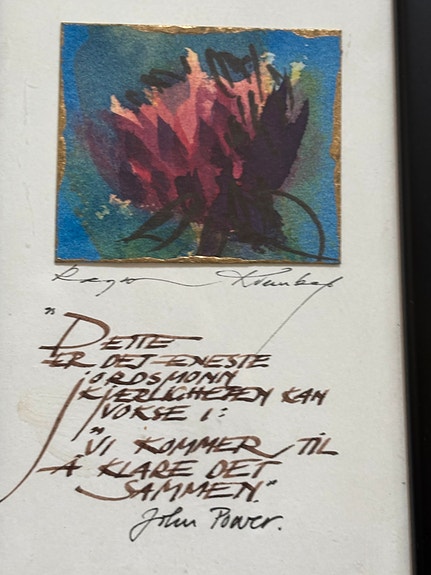 "Dette
er det eneste
jordsmonn
kjærligheten kan
vokse i:
"Vi kommer til
å klare det
sammen."
John Power.